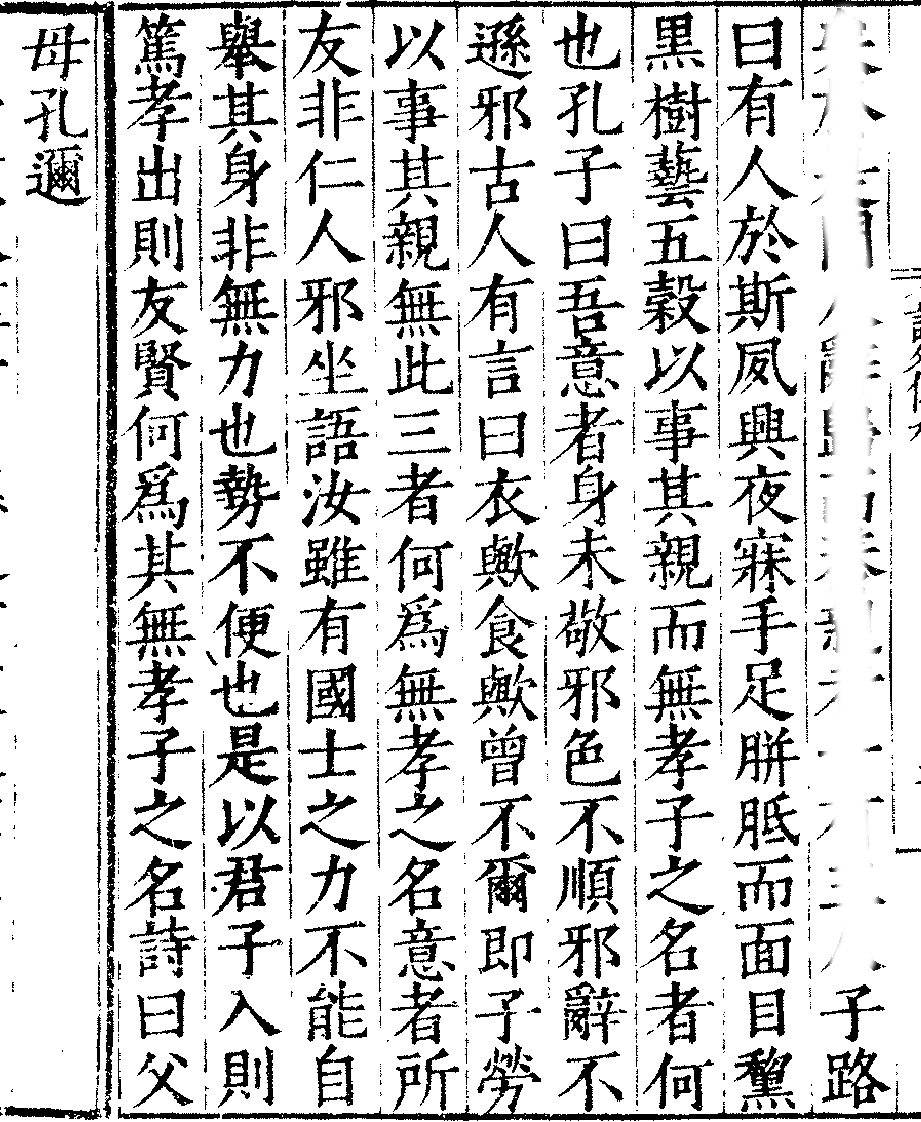 子路
曰有人於斯夙興夜寐手足胼胝而面目黧
黑樹藝五穀以事其親而無孝子之名者何
也孔子曰吾意者身未敬邪色不順邪辭不
遜邪古人有言曰衣歟食歟曾不爾即子勞
以事其親無此三者何爲無孝之名意者所
友非仁人邪坐語汝雖有國士之力不能自
舉其身非無力也勢不便也是以君子入則
篤孝出則友賢何爲其無孝子之名詩曰父
母孔邇